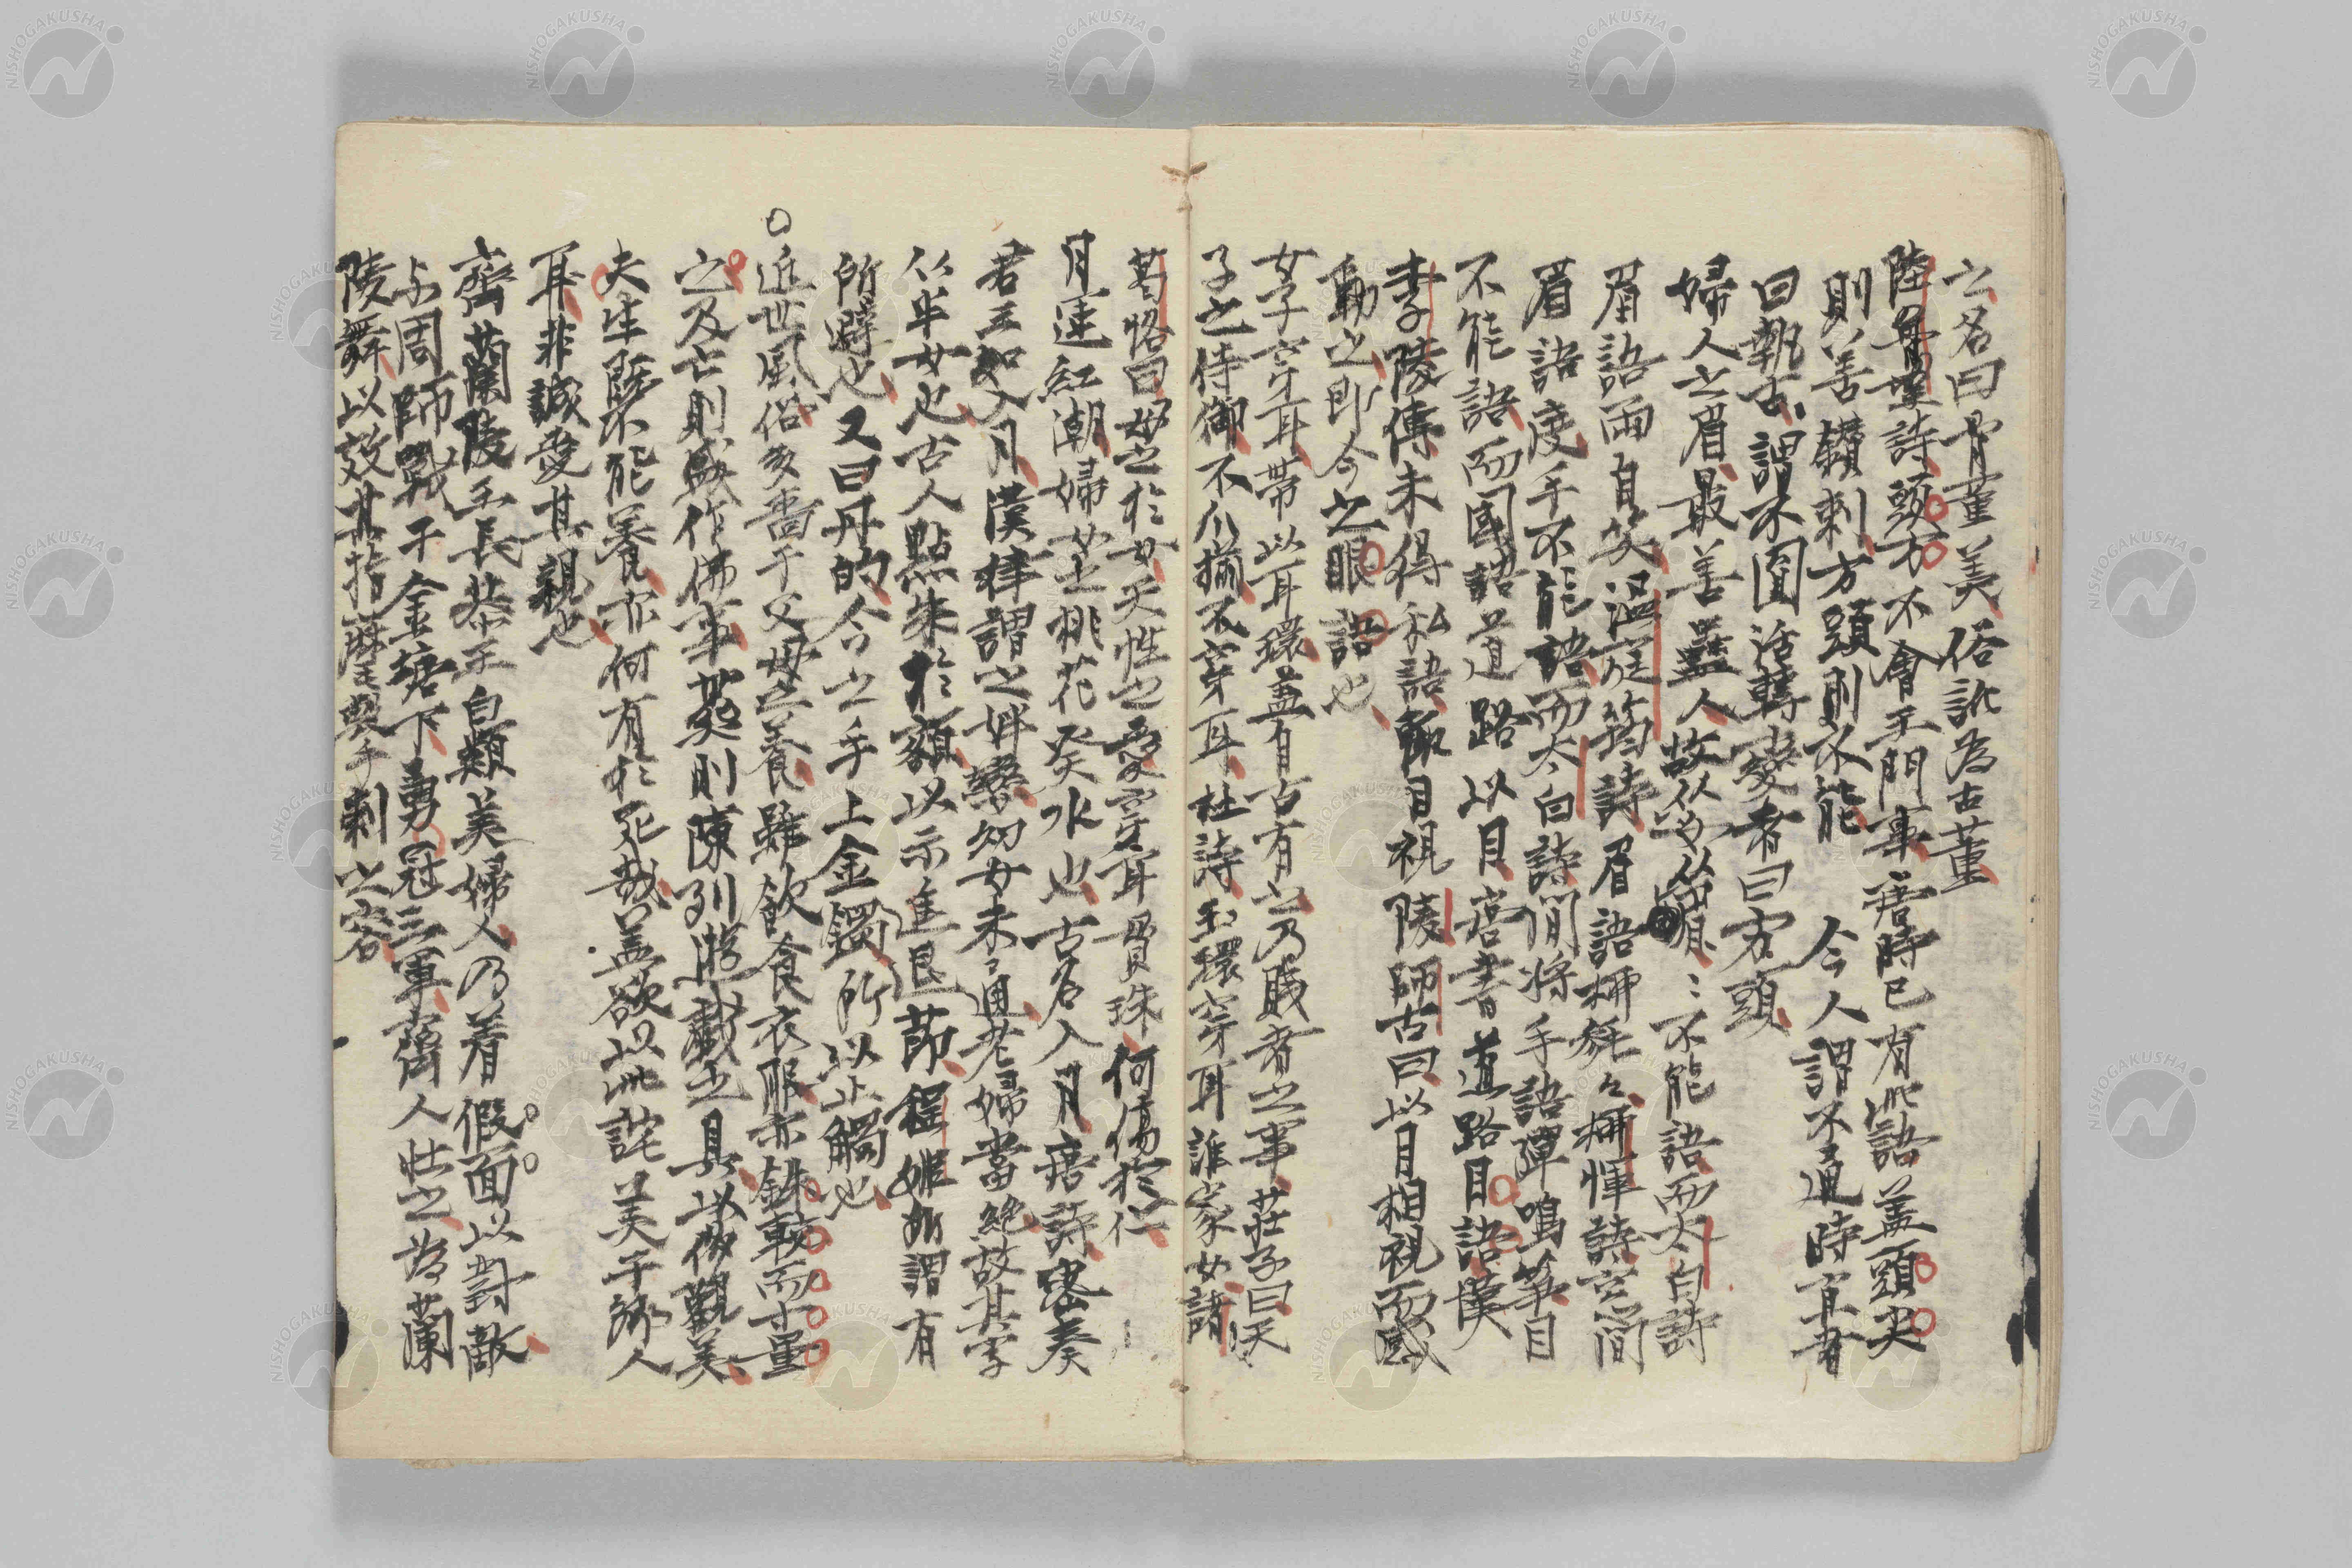 之名曰骨董羹俗訛為古董
陸魯望詩頭方不會王門事唐時已有此語蓋頭尖
則以善鑽刺方頭則不能　今人謂不通時宜者
曰執古謂不圓活轉變者曰方頭
婦人之眉最善蠱人故从女从眉眉不能語而太白詩
眉語兩自笑溫庭筠詩眉語柳毿毿柳惲詩空間
眉語度手不能語而太白詩間將手語彈鳴箏目
不能語而國語道路以目唐書道路目語漢
李陵傳未得私語輒目視陵師古曰以目相視而感
動之即今之眼語也
女子穿耳帶以耳環蓋自古有之乃賤者之事莊子曰天
子之侍御不爪揃不穿耳杜詩玉環穿耳誰家女諸
葛恪曰母之於女天性也愛穿耳貫珠何傷於仁
月運紅潮婦女之桃花癸水也古名入月唐詩密奏
君王知入月漢律謂之姅變幼女未通老婦當絕故其字
从半女也古人點朱於額以示進退節程姬所謂有
所避也又曰丹的今之手上金鐲所以止觸也
○近世風俗多嗇于父母之養雖飲食衣服亦銖較而寸量
之及亡則盛作佛事葬則陳列遊戲之具以侈觀美
夫生既不能養亦何有於死哉蓋欲以此詫美于鄉人
耳非誠愛其親也
齊蘭陵王長恭王白類美婦人乃着假面以對敵
與周師戰于金墉下勇冠三軍齊人壯之為蘭
陵舞以效其指麾擊刺之容